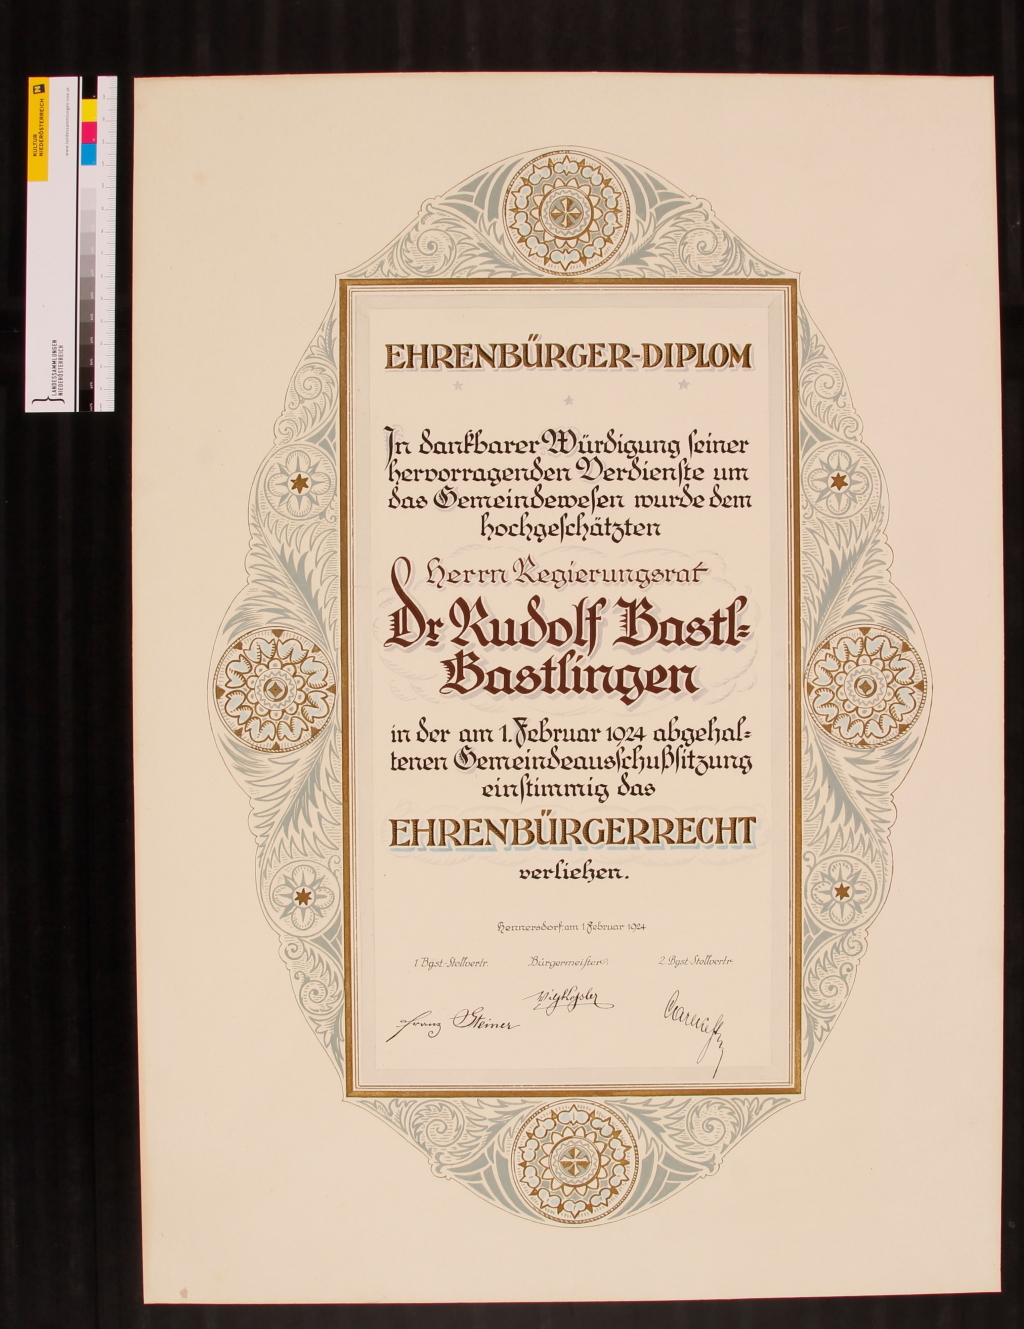 KULTUR
NIEDERÖSTERREICH
LANDESSAMMLUNGEN
NIEDERÖSTERREICH
EHRENBÜRGER-DIPLOM
In dankbarer Würdigung seiner
hervorragenden Verdienste um
das Gemeindewesen wurde dem
hochgeschätzten
Herrn Regierungsrat
Dr Rudolf Bastl-
Bastlingen
in der am 1. Februar 1924 abgehal-
tenen Gemeindeausschußsitzung
einstimmig das
EHRENBÜRGERRECHT
verliehen.
Hennersdorf, am 1. Februar 1924
1. Bgst.-Stellvertr. Bürgermeister: 2. Bgst.-Stellvertr.
Franz Steiner